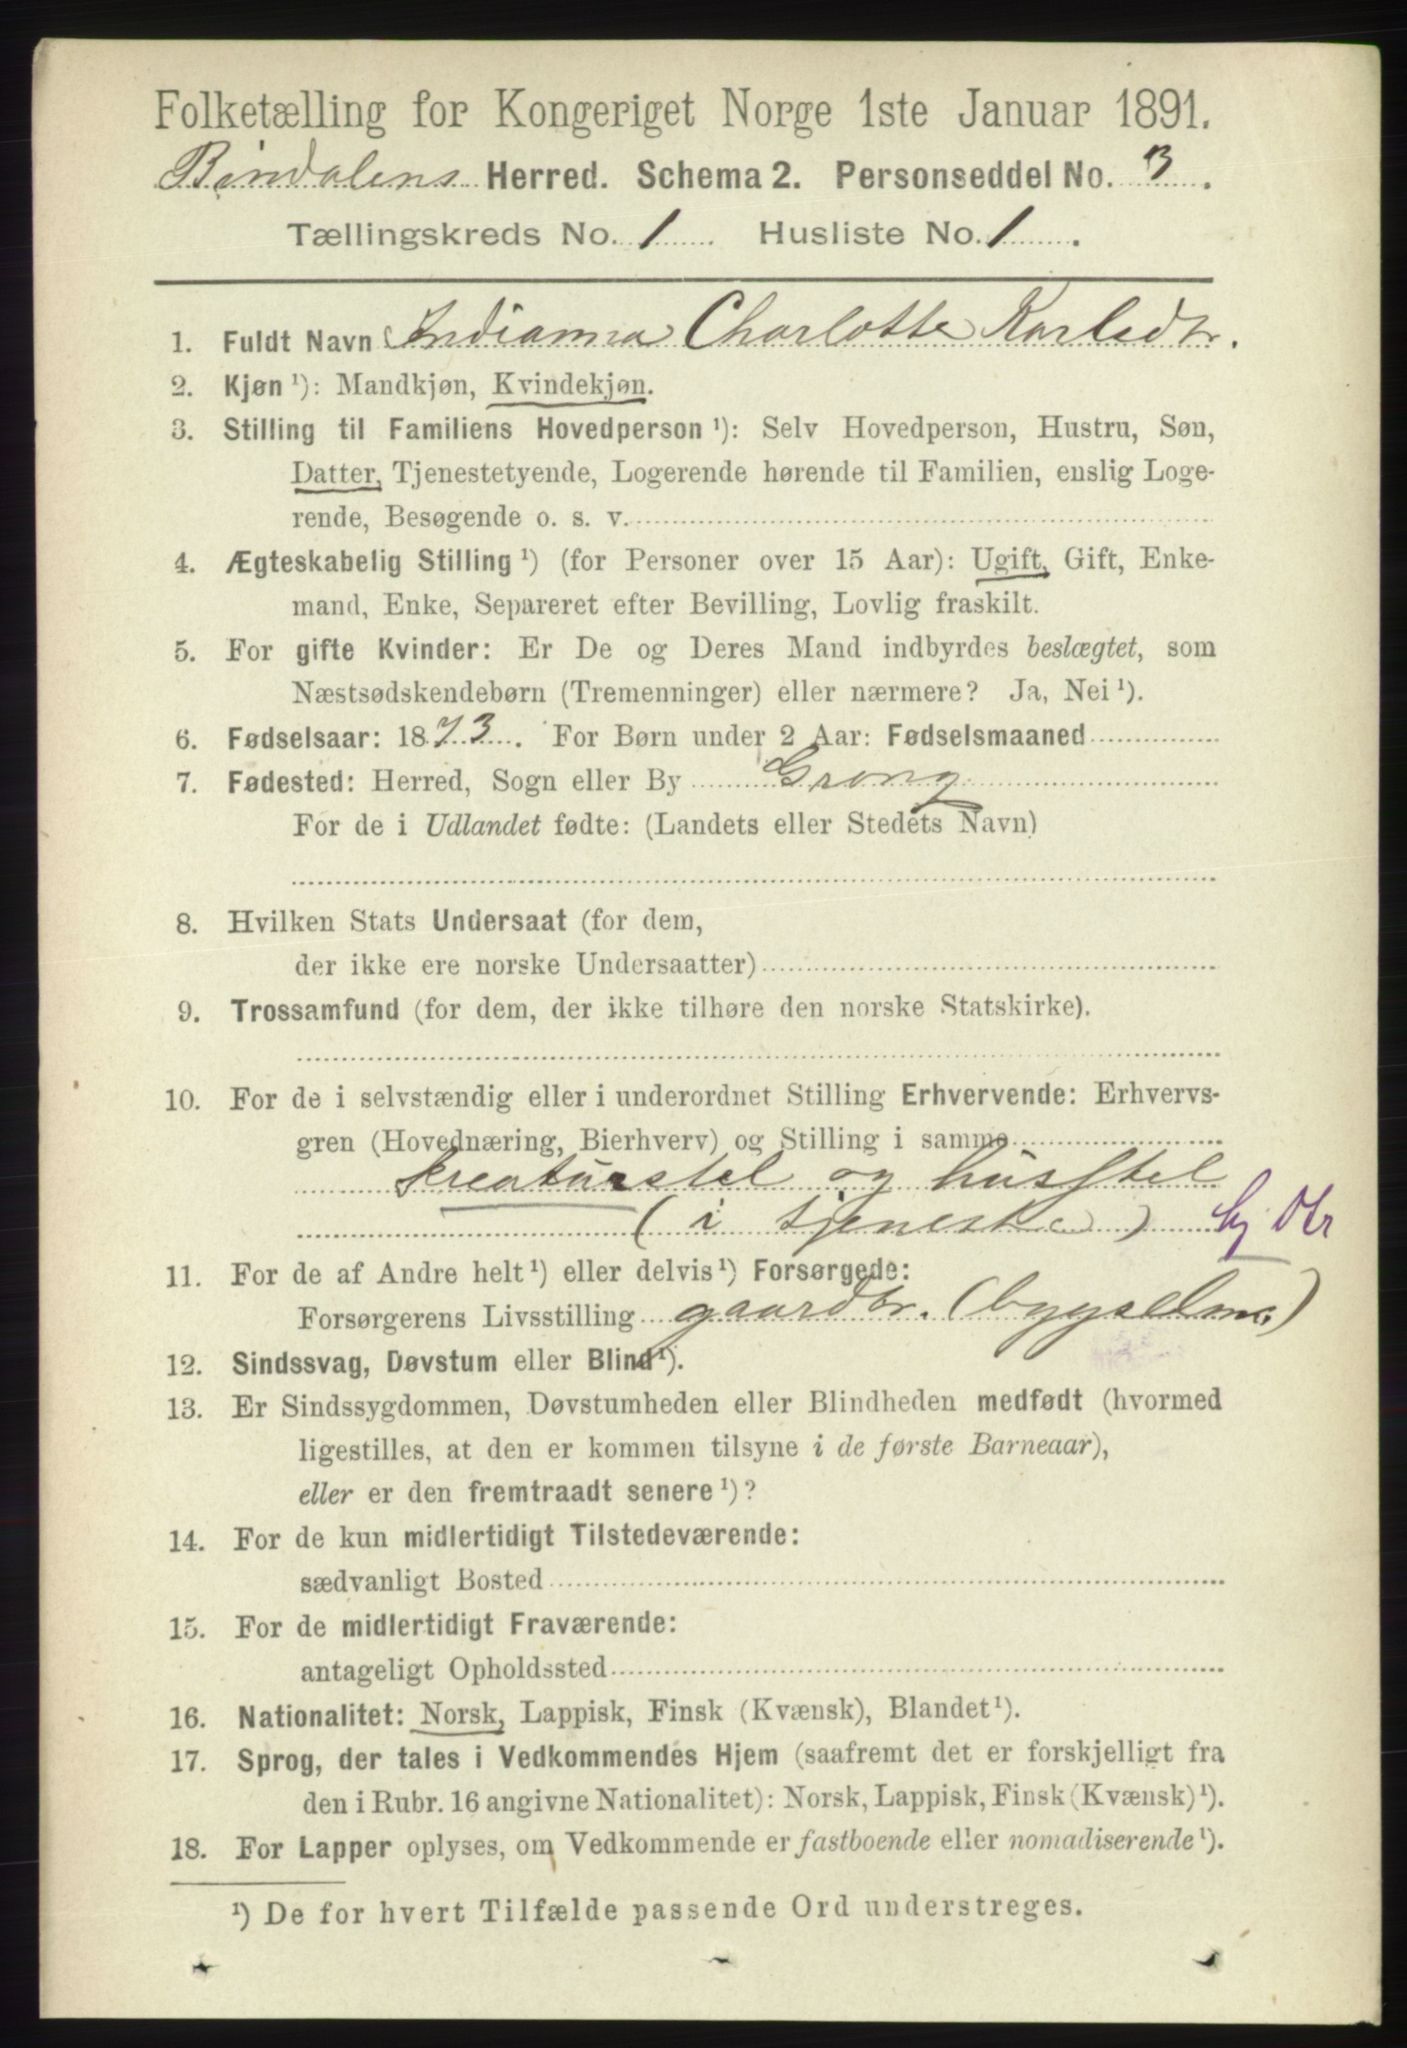 Folketælling for Kongeriget Norge 1ste Januar 1891.
Bindalens Herred. Schema 2. Personseddel No. 3.
Tællingskreds No. 1 Husliste No. 1.
1. Fuldt Navn Indianna Charlotte Karlsdtr.
2. Kjøn ¹): Mandkjøn, Kvindekjøn.
3. Stilling til Familiens Hovedperson ¹): Selv Hovedperson, Hustru, Søn,
Datter, Tjenestetyende, Logerende hørende til Familien, enslig Loge-
rende, Besøgende o. s. v.
4. Ægteskabelig Stilling ¹) (for Personer over 15 Aar): Ugift, Gift, Enke-
mand, Enke, Separeret efter Bevilling, Lovlig fraskilt.
5. For gifte Kvinder: Er De og Deres Mand indbyrdes beslægtet, som
Næstsødskendebørn (Tremenninger) eller nærmere? Ja, Nei ¹).
6. Fødselsaar: 1873. For Børn under 2 Aar: Fødselsmaaned
7. Fødested: Herred, Sogn eller By Grong
For de i Udlandet fødte: (Landets eller Stedets Navn)
8. Hvilken Stats Undersaat (for dem,
der ikke ere norske Undersaatter)
9. Trossamfund (for dem, der ikke tilhøre den norske Statskirke).
10. For de i selvstændig eller i underordnet Stilling Erhvervende: Erhvervs-
gren (Hovednæring, Bierhverv) og Stilling i samme
kreaturstel og husstel
(i tjeneste)
11. For de af Andre helt ¹) eller delvis ¹) Forsørgede:
Forsørgerens Livsstilling gaardbr. (bygselm.)
12. Sindssvag, Døvstum eller Blind ¹).
13. Er Sindssygdommen, Døvstumheden eller Blindheden medfødt (hvormed
ligestilles, at den er kommen tilsyne i de første Barneaar),
eller er den fremtraadt senere ¹)?
14. For de kun midlertidigt Tilstedeværende:
sædvanligt Bosted
15. For de midlertidigt Fraværende:
antageligt Opholdssted
16. Nationalitet: Norsk, Lappisk, Finsk (Kvænsk), Blandet ¹).
17. Sprog, der tales i Vedkommendes Hjem (saafremt det er forskjelligt fra
den i Rubr. 16 angivne Nationalitet): Norsk, Lappisk, Finsk (Kvænsk) ¹).
18. For Lapper oplyses, om Vedkommende er fastboende eller nomadiserende ¹).
¹) De for hvert Tilfælde passende Ord understreges.